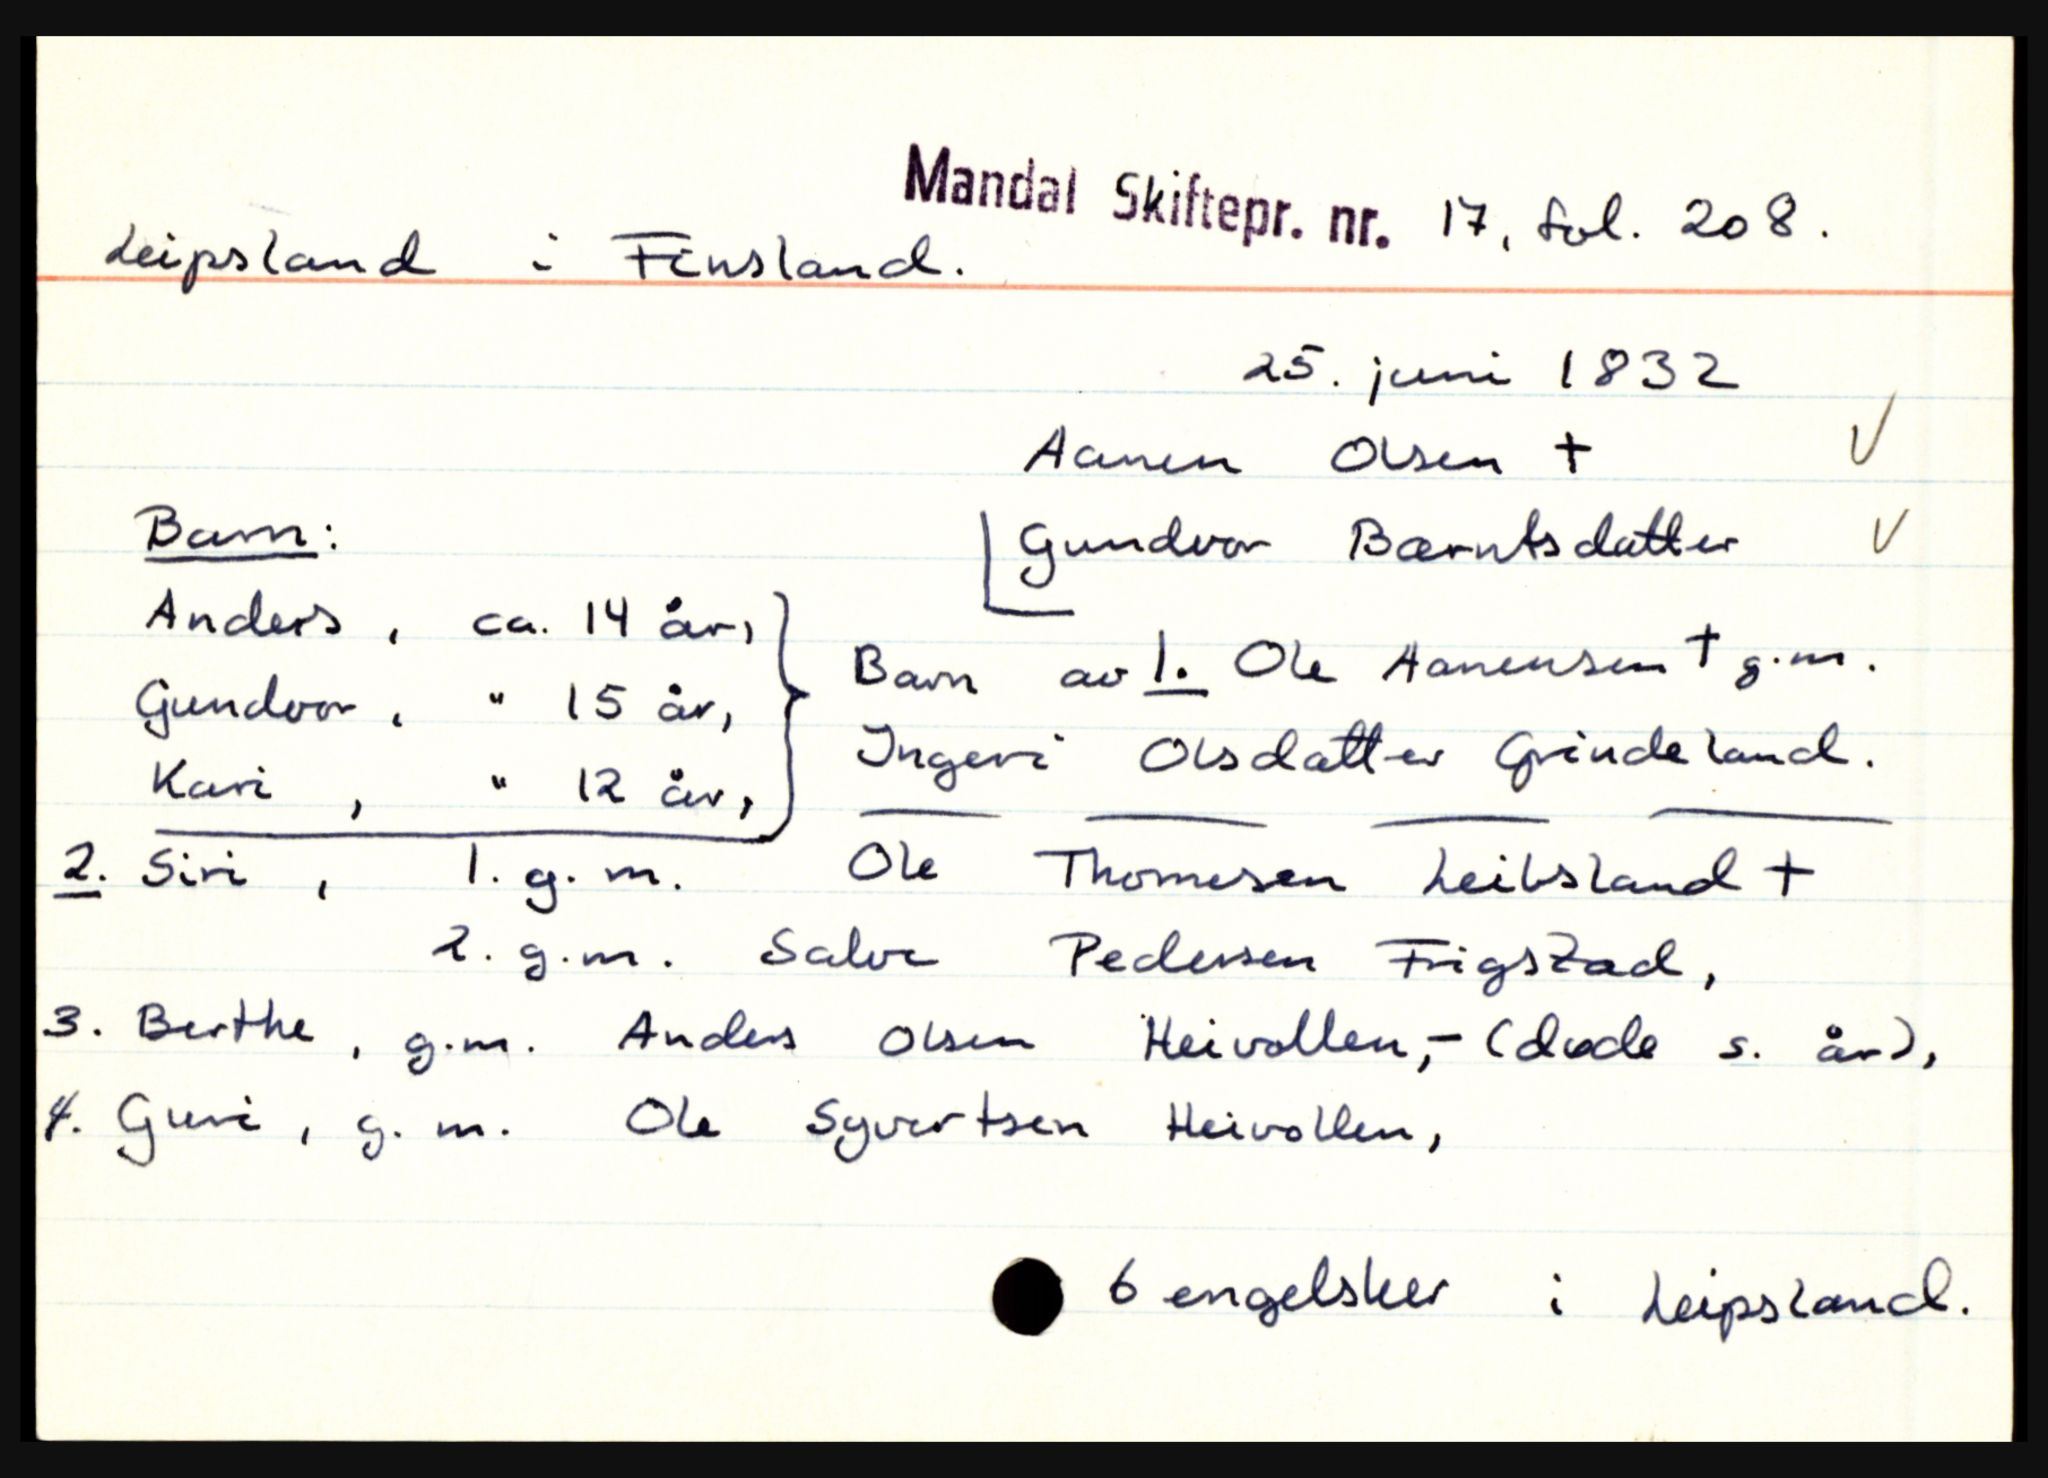 Mandal Skiftepr. nr. 17, fol. 208.
Leipsland i Finsland.
25. juni 1832
Aanen Olsen † ✓
Gundvor Bærntsdatter ✓
Barn:
Anders, ca. 14 år,
Gundvor, " 15 år,
Kari, " 12 år,
Barn av 1. Ole Aanensen † g.m.
Ingeri Olsdatter Grindeland.
2. Siri, 1. g.m. Ole Thomesen Leibsland †
2. g.m. Salve Pedersen Frigstad,
3. Berthe, g.m. Anders Olsen Heivollen,- (døde s. år),
4. Guri, g.m. Ole Syvertsen Heivollen,
6 engelsker i Leipsland.